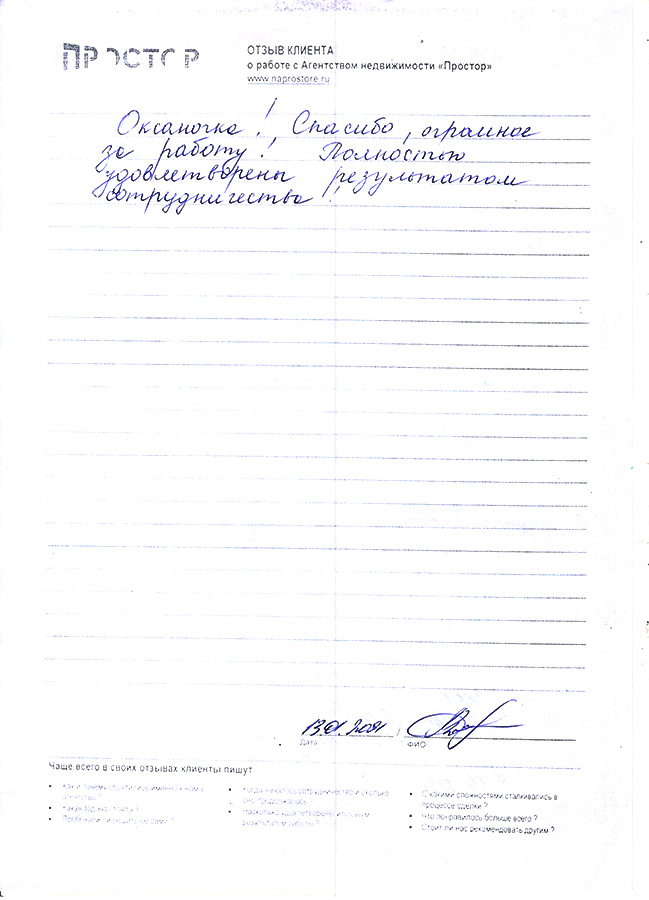 ПРОСТОР
ОТЗЫВ КЛИЕНТА
о работе с Агентством недвижимости «Простор»
www.naprostore.ru
Оксаночка! Спасибо, огромное
за работу! Полностью
удовлетворены результатом
сотрудничества!
13.01.2021 /
Дата
ФИО
Чаще всего в своих отзывах клиенты пишут
• Как и почему обратились именно к нам в
агентство ?
• Какая задача стояла ?
• Пробовали ли решать её сами ?
• Когда началось сотрудничество и сколько
оно продолжалось ?
• Насколько удовлетворены итоговым
результатом работы ?
• С какими сложностями сталкивались в
процессе сделки ?
• Что понравилось больше всего ?
• Стоит ли нас рекомендовать другим ?